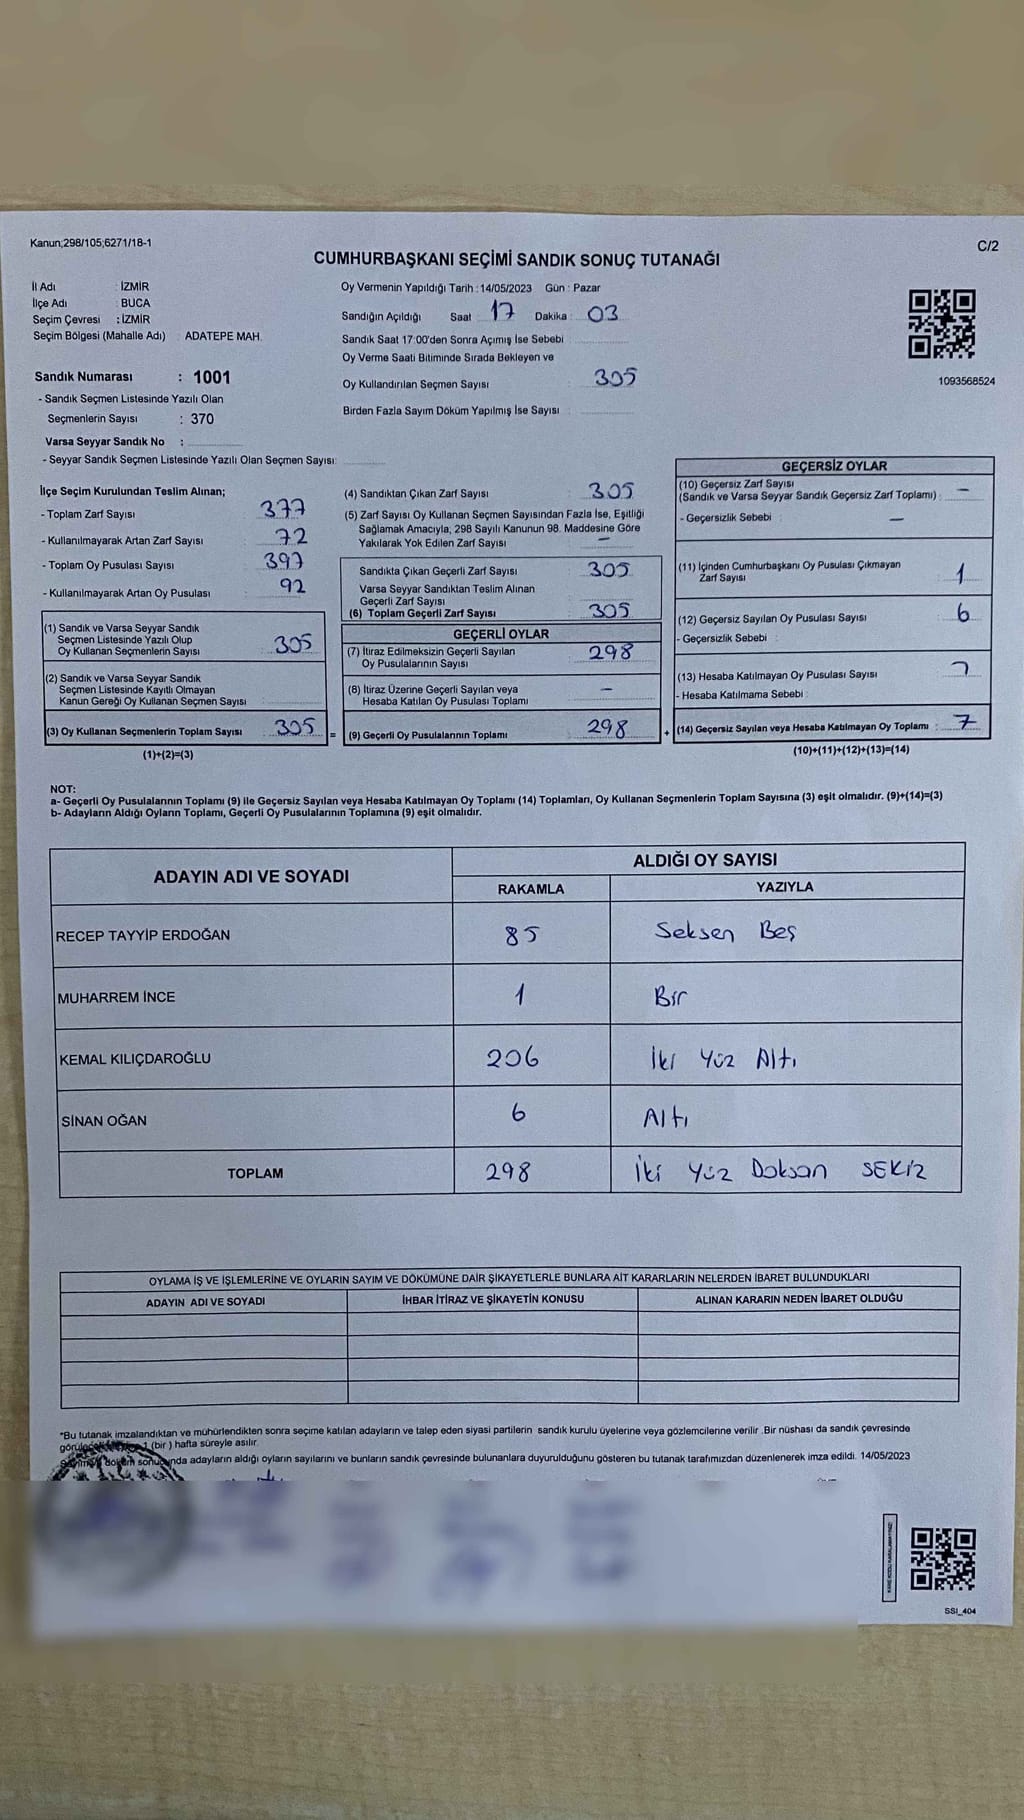 Kanun;298/105;6271/18-1
C/2
CUMHURBAŞKANI SEÇİMİ SANDIK SONUÇ TUTANAĞI
İl Adı : İZMİR
İlçe Adı : BUCA
Seçim Çevresi : İZMİR
Seçim Bölgesi (Mahalle Adı) : ADATEPE MAH.
Sandık Numarası : 1001
- Sandık Seçmen Listesinde Yazılı Olan
Seçmenlerin Sayısı : 370
Varsa Seyyar Sandık No :
- Seyyar Sandık Seçmen Listesinde Yazılı Olan Seçmen Sayısı:
Oy Vermenin Yapıldığı Tarih : 14/05/2023 Gün : Pazar
Sandığın Açıldığı Saat : 17 Dakika : 03
Sandık Saat 17:00'den Sonra Açımış İse Sebebi :
Oy Verme Saati Bitiminde Sırada Bekleyen ve
Oy Kullandırılan Seçmen Sayısı : 305
Birden Fazla Sayım Döküm Yapılmış İse Sayısı :
1093568524
İlçe Seçim Kurulundan Teslim Alınan;
- Toplam Zarf Sayısı : 377
- Kullanılmayarak Artan Zarf Sayısı : 72
- Toplam Oy Pusulası Sayısı : 397
- Kullanılmayarak Artan Oy Pusulası : 92
(1) Sandık ve Varsa Seyyar Sandık
Seçmen Listesinde Yazılı Olup
Oy Kullanan Seçmenlerin Sayısı : 305
(2) Sandık ve Varsa Seyyar Sandık
Seçmen Listesinde Kayıtlı Olmayan
Kanun Gereği Oy Kullanan Seçmen Sayısı :
(3) Oy Kullanan Seçmenlerin Toplam Sayısı : 305 =
(1)+(2)=(3)
(4) Sandıktan Çıkan Zarf Sayısı : 305
(5) Zarf Sayısı Oy Kullanan Seçmen Sayısından Fazla İse, Eşitliği
Sağlamak Amacıyla, 298 Sayılı Kanunun 98. Maddesine Göre
Yakılarak Yok Edilen Zarf Sayısı : –
Sandıkta Çıkan Geçerli Zarf Sayısı : 305
Varsa Seyyar Sandıktan Teslim Alınan
Geçerli Zarf Sayısı
(6) Toplam Geçerli Zarf Sayısı : 305
GEÇERLİ OYLAR
(7) İtiraz Edilmeksizin Geçerli Sayılan
Oy Pusulalarının Sayısı : 298
(8) İtiraz Üzerine Geçerli Sayılan veya
Hesaba Katılan Oy Pusulası Toplamı : –
(9) Geçerli Oy Pusulalarının Toplamı : 298 +
GEÇERSİZ OYLAR
(10) Geçersiz Zarf Sayısı
(Sandık ve Varsa Seyyar Sandık Geçersiz Zarf Toplamı) : –
- Geçersizlik Sebebi : –
(11) İçinden Cumhurbaşkanı Oy Pusulası Çıkmayan
Zarf Sayısı : 1
(12) Geçersiz Sayılan Oy Pusulası Sayısı : 6
- Geçersizlik Sebebi :
(13) Hesaba Katılmayan Oy Pusulası Sayısı :
- Hesaba Katılmama Sebebi :
(14) Geçersiz Sayılan veya Hesaba Katılmayan Oy Toplamı : 7
(10)+(11)+(12)+(13)=(14)
NOT:
a- Geçerli Oy Pusulalarının Toplamı (9) ile Geçersiz Sayılan veya Hesaba Katılmayan Oy Toplamı (14) Toplamları, Oy Kullanan Seçmenlerin Toplam Sayısına (3) eşit olmalıdır. (9)+(14)=(3)
b- Adayların Aldığı Oyların Toplamı, Geçerli Oy Pusulalarının Toplamına (9) eşit olmalıdır.
ADAYIN ADI VE SOYADI ALDIĞI OY SAYISI
RAKAMLA YAZIYLA
RECEP TAYYİP ERDOĞAN 85 Seksen Beş
MUHARREM İNCE 1 Bir
KEMAL KILIÇDAROĞLU 206 İki Yüz Altı
SİNAN OĞAN 6 Altı
TOPLAM 298 İki Yüz Doksan SEKİZ
OYLAMA İŞ VE İŞLEMLERİNE VE OYLARIN SAYIM VE DÖKÜMÜNE DAİR ŞİKAYETLERLE BUNLARA AİT KARARLARIN NELERDEN İBARET BULUNDUKLARI
ADAYIN ADI VE SOYADI İHBAR İTİRAZ VE ŞİKAYETİN KONUSU ALINAN KARARIN NEDEN İBARET OLDUĞU
*Bu tutanak imzalandıktan ve mühürlendikten sonra seçime katılan adayların ve talep eden siyasi partilerin sandık kurulu üyelerine veya gözlemcilerine verilir .Bir nüshası da sandık çevresinde
1 (bir ) hafta süreyle asılır.
döküm sonucunda adayların aldığı oyların sayılarını ve bunların sandık çevresinde bulunanlara duyurulduğunu gösteren bu tutanak tarafımızdan düzenlenerek imza edildi. 14/05/2023
SSI_404